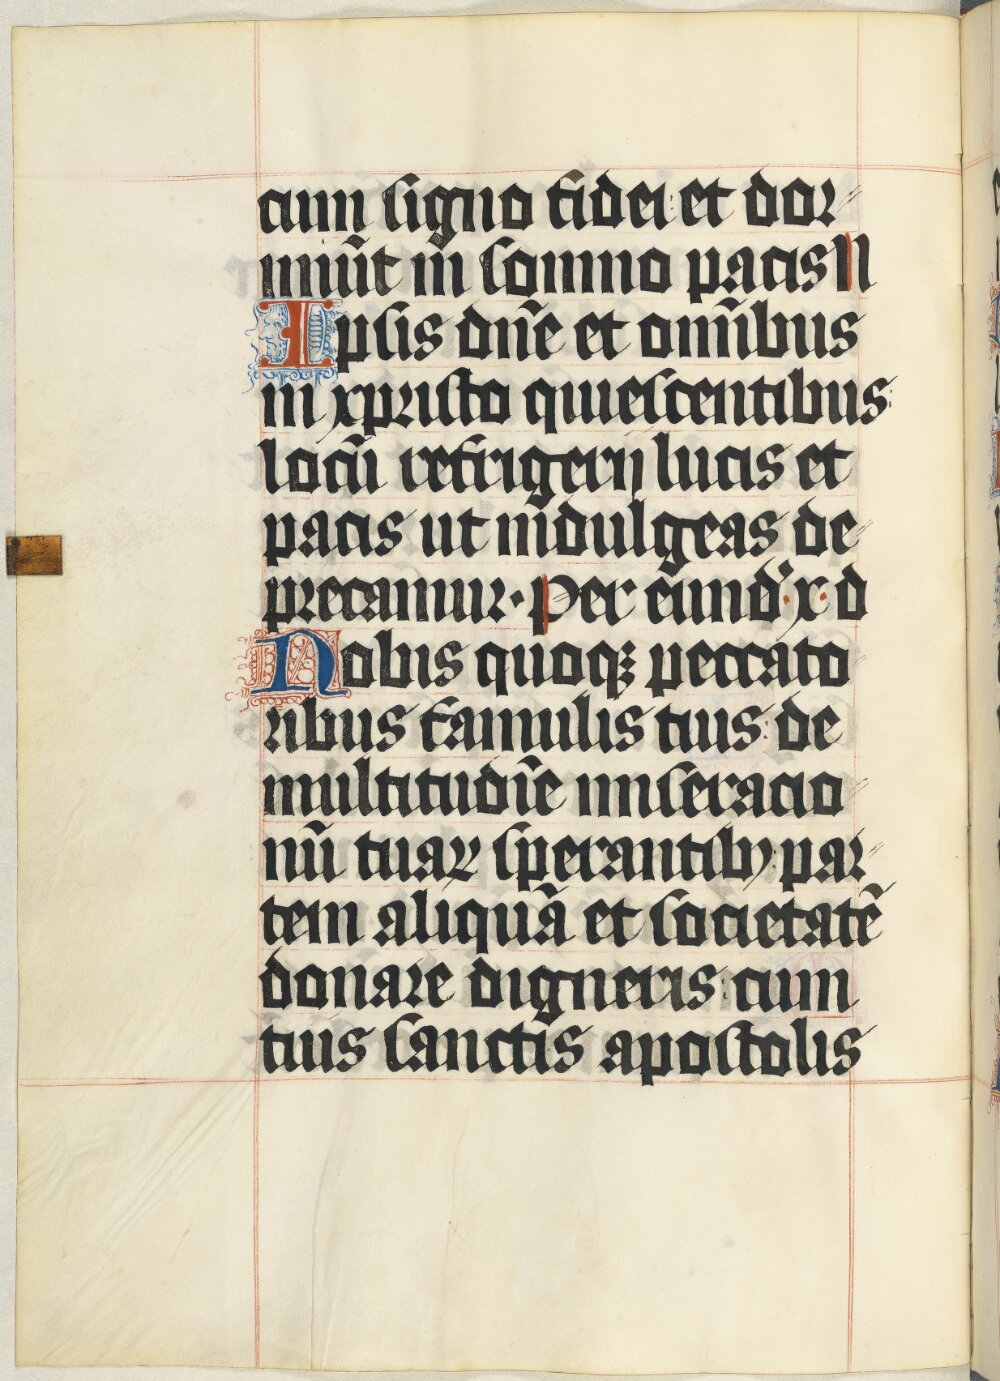 cum signo fidei et dor⸗
miūt in somno pacis N
Ipsis dn̄e et om̄ibus
in xpristo quiescentibus
locū refrigerij lucis et
pacis ut indulgeas de⸗
precamur· Per eund̄·x·d
Nobis quoqꝫ peccato
ribus famulis tuis de
multitudīe miseracio⸗
nū tuaꝝ sperantibꝫ par⸗
tem aliquā et societatē
donare digneris cum
tuis sanctis apostolis